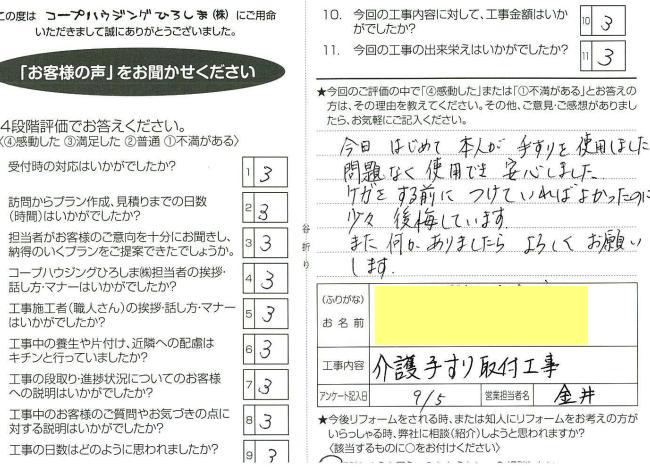 この度は コープハウジングひろしま(株)にご用命
いただきまして誠にありがとうございました。
「お客様の声」をお聞かせください
4段階評価でお答えください。
〈④感動した ③満足した ②普通 ①不満がある〉
受付時の対応はいかがでしたか?
1 3
訪問からプラン作成、見積りまでの日数
(時間)はいかがでしたか?
2 3
担当者がお客様のご意向を十分にお聞きし、
納得のいくプランをご提案できたでしょうか。
3 3
コープハウジングひろしま㈱担当者の挨拶・
話し方・マナーはいかがでしたか?
4 3
工事施工者(職人さん)の挨拶・話し方・マナー
はいかがでしたか?
5 3
工事中の養生や片付け、近隣への配慮は
キチンと行っていましたか?
6 3
工事の段取り・進捗状況についてのお客様
への説明はいかがでしたか?
7 3
工事中のお客様のご質問やお気づきの点に
対する説明はいかがでしたか?
8 3
工事の日数はどのように思われましたか?
9 3
谷折り
10. 今回の工事内容に対して、工事金額はいか
がでしたか?
10 3
11. 今回の工事の出来栄えはいかがでしたか?
11 3
★今回のご評価の中で「④感動した」または「①不満がある」とお答えの
方は、その理由を教えてください。その他、ご意見・ご感想がありまし
たら、お気軽にご記入ください。
今日 はじめて 本人が 手すりを 使用しました
問題なく 使用でき 安心しました
ケガを する前に つけていれば よかったのに
少々 後悔しています.
また 何か ありましたら よろしく お願い
します.
(ふりがな)
お名前
工事内容 介護手すり取付工事
アンケート記入日 9/5 営業担当者名 金井
★今後リフォームをされる時、または知人にリフォームをお考えの方が
いらっしゃる時、弊社に相談(紹介)しようと思われますか?
〈該当するものに○をお付けください〉